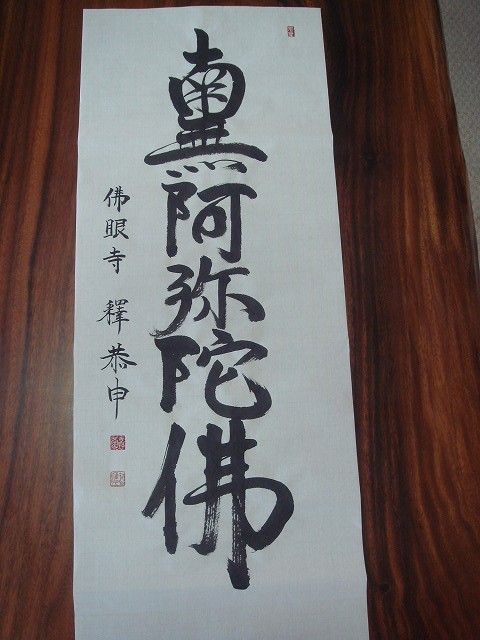 南無阿弥陀佛
佛眼寺 釋恭申